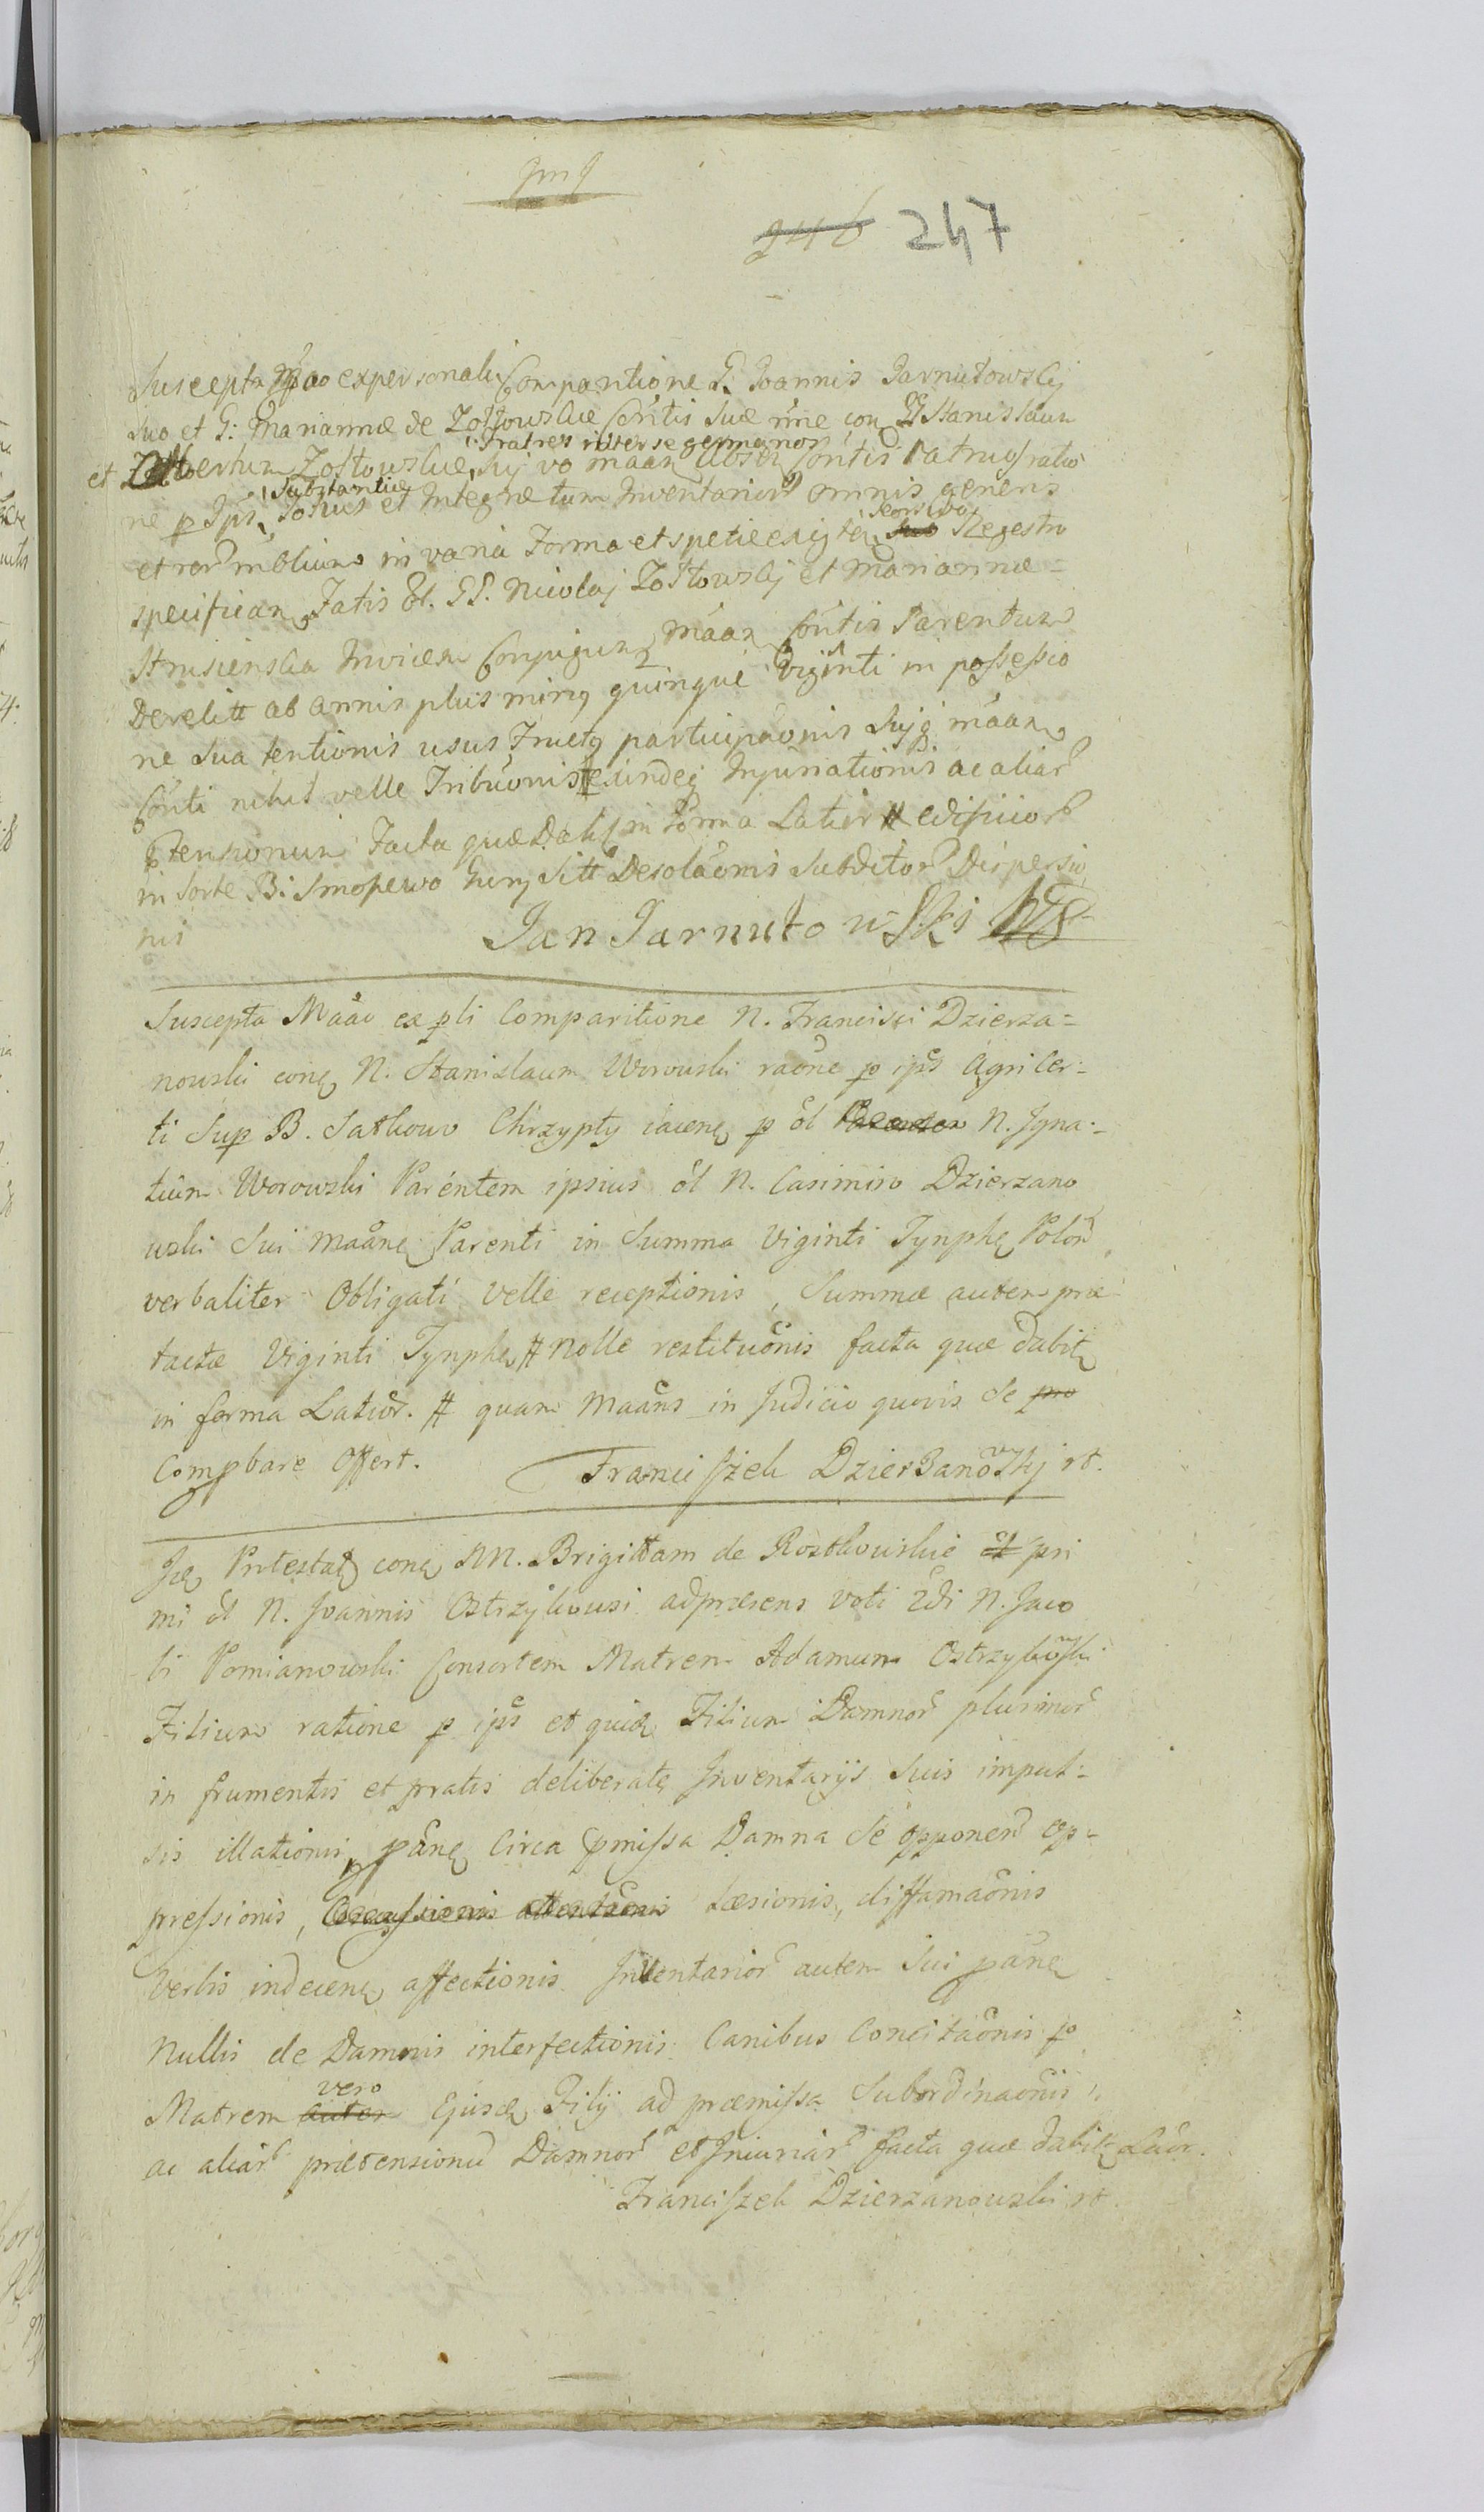 246 247
Suscepta Maao ex personali Comparitione G. Joannis Jarnutowskj
suo et G: Mariannæ de Zołtowskie Contis suæ nne con GG Stanislaum
et Albertum Zołtowskie, Fratres inter se germanos, suj vo maan Contis Patruos ratio
ne p Ips. Substantiæ totius et Integræ tum Inventarior omnis generis
et rer mblium in varia Forma et spetie exigten seorsivo Regestro
specifican, Fatis Ol. GG. Nicolaj Zołtowskj et Mariannæ =
Strusienska Invicem Conjugum maan Contis Parentum
Derelitt ab annis plus minq quinque Viginti in possessio
ne sua tentionis usus Fructq participaonis sujq maan
Conti nihil velle Tribuonis eundeq Injuriationis ac aliar
Ptensionum Facta quæ Dabit in Forma Latior # edificior
in sorte B: Smoszewo hunj sitt Desolaonis subditor Dispersio
nis Jan Jarnutowski
Suscepta Maao ex pli Comparitione N. Francisci Dzierza=
nowski con N. Stanislaum Worowski raone p ips Agri Cer=
ti sup B. Satkowo Chrzypty iacen p ol Parentem N. Igna=
tium Worowski Parentem ipsius ol N. Casimiro Dzierzano
wski sui maane Parenti in Summa Viginti Tynphe Polon
verbaliter Obligati Velle receptionis, Summæ autem præ
tactæ Viginti Tynphe # Nolle restituonis facta quæ dabit
in forma Latior. # quam Maans in Judicio quovis se pro
Compbare Offert. Franciszek Dzierzanowskj
Ite Prtestat con NN. Brigittam de Rostkowskie et pri
mi ol N. Joannis Ostrzykowsi adpræsens voti 2di N. Jaco
bi Pomianowski Consortem Matrem Adamum Ostrzykowski
Filium ratione p ips et quid Filium Damnor plurimor
in frumentis et pratis deliberate Inventarijs suis impul=
sis illationis, pane Circa pmissa Damna se opponen op=
pressionis, læsionis, diffamaonis
Verbis indecen affectionis Inventarior autem sui pane
Nullis de Damnis interfectionis Canibus Concitaonis p
Matrem autem vero Ejusd Filij ad præmissa Subordinaonis
ac aliar prætensionu Damnor et Iniuriar facta quæ dabit Laor.
Franciszek Dzierzanowski